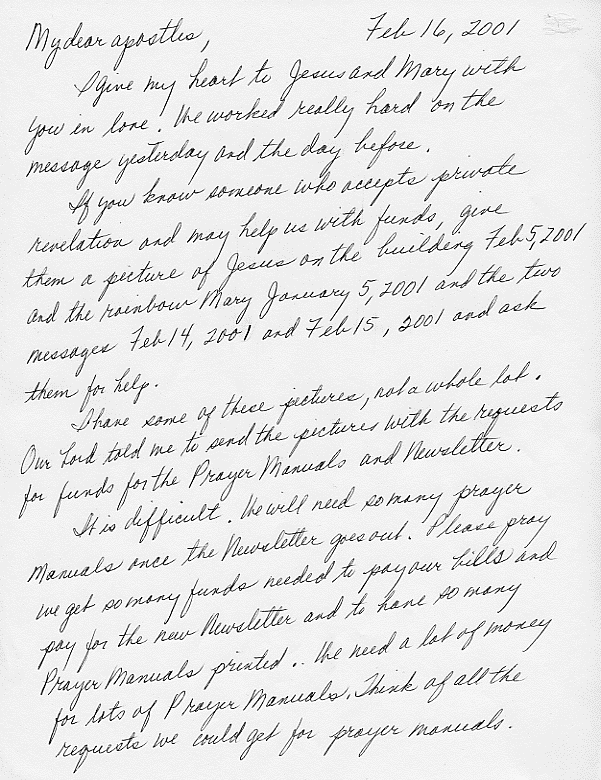 My dear apostles, Feb 16, 2001
I give my heart to Jesus and Mary with
you in love. We worked really hard on the
message yesterday and the day before.
If you know someone who accepts private
revelation and may help us with funds, give
them a picture of Jesus on the building Feb 5, 2001
and the rainbow Mary January 5, 2001 and the two
messages Feb 14, 2001 and Feb 15, 2001 and ask
them for help.
I have some of these pictures, not a whole lot.
Our Lord told me to send the pictures with the requests
for funds for the Prayer Manuals and Newsletter.
It is difficult. We will need so many prayer
Manuals once the Newsletter goes out. Please pray
we get so many funds needed to pay our bills and
pay for the new Newsletter and to have so many
Prayer Manuals printed.. We need a lot of money
for lots of Prayer Manuals. Think of all the
requests we could get for prayer manuals.